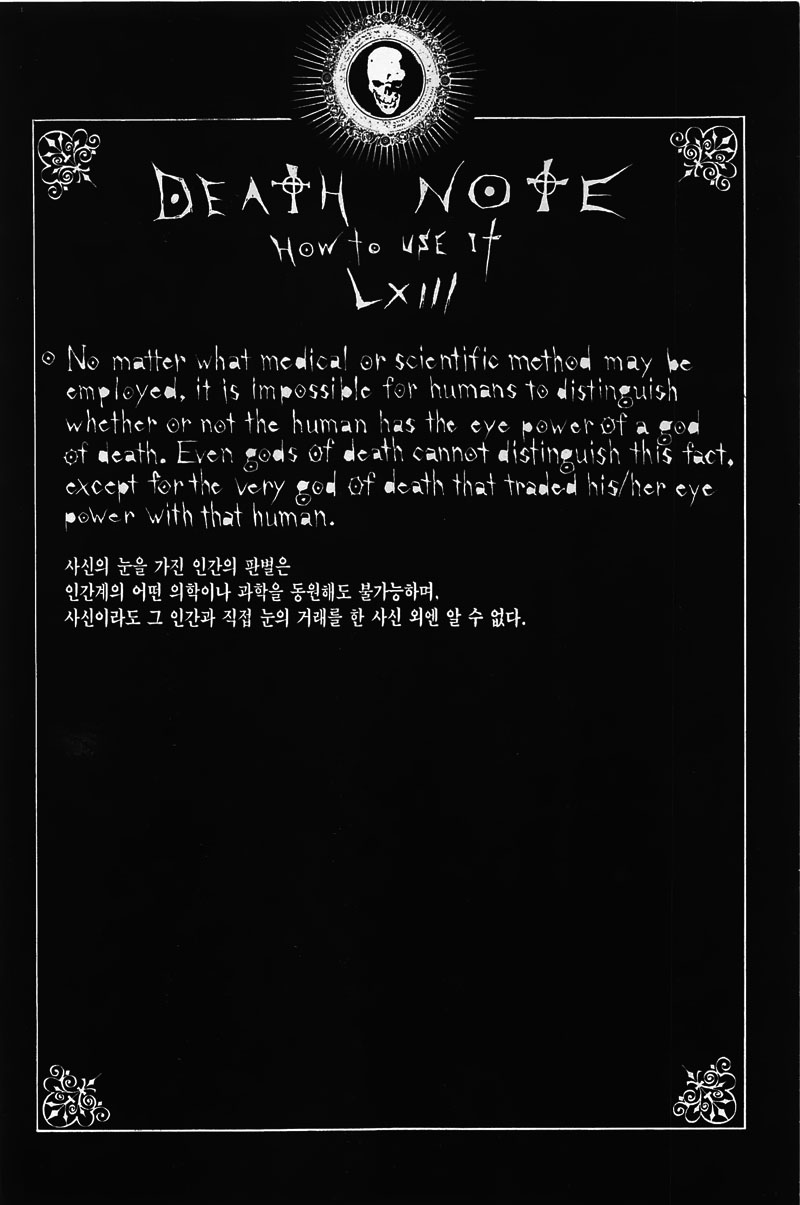 DEATH NOTE
HOW to USE It
LXIII
No matter what medical or scientific method may be
employed, it is impossible for humans to distinguish
whether or not the human has the eye power of a god
of death. Even gods of death cannot distinguish this fact,
except for the very god of death that traded his/her eye
power with that human.
사신의 눈을 가진 인간의 판별은
인간계의 어떤 의학이나 과학을 동원해도 불가능하며,
사신이라도 그 인간과 직접 눈의 거래를 한 사신 외엔 알 수 없다.